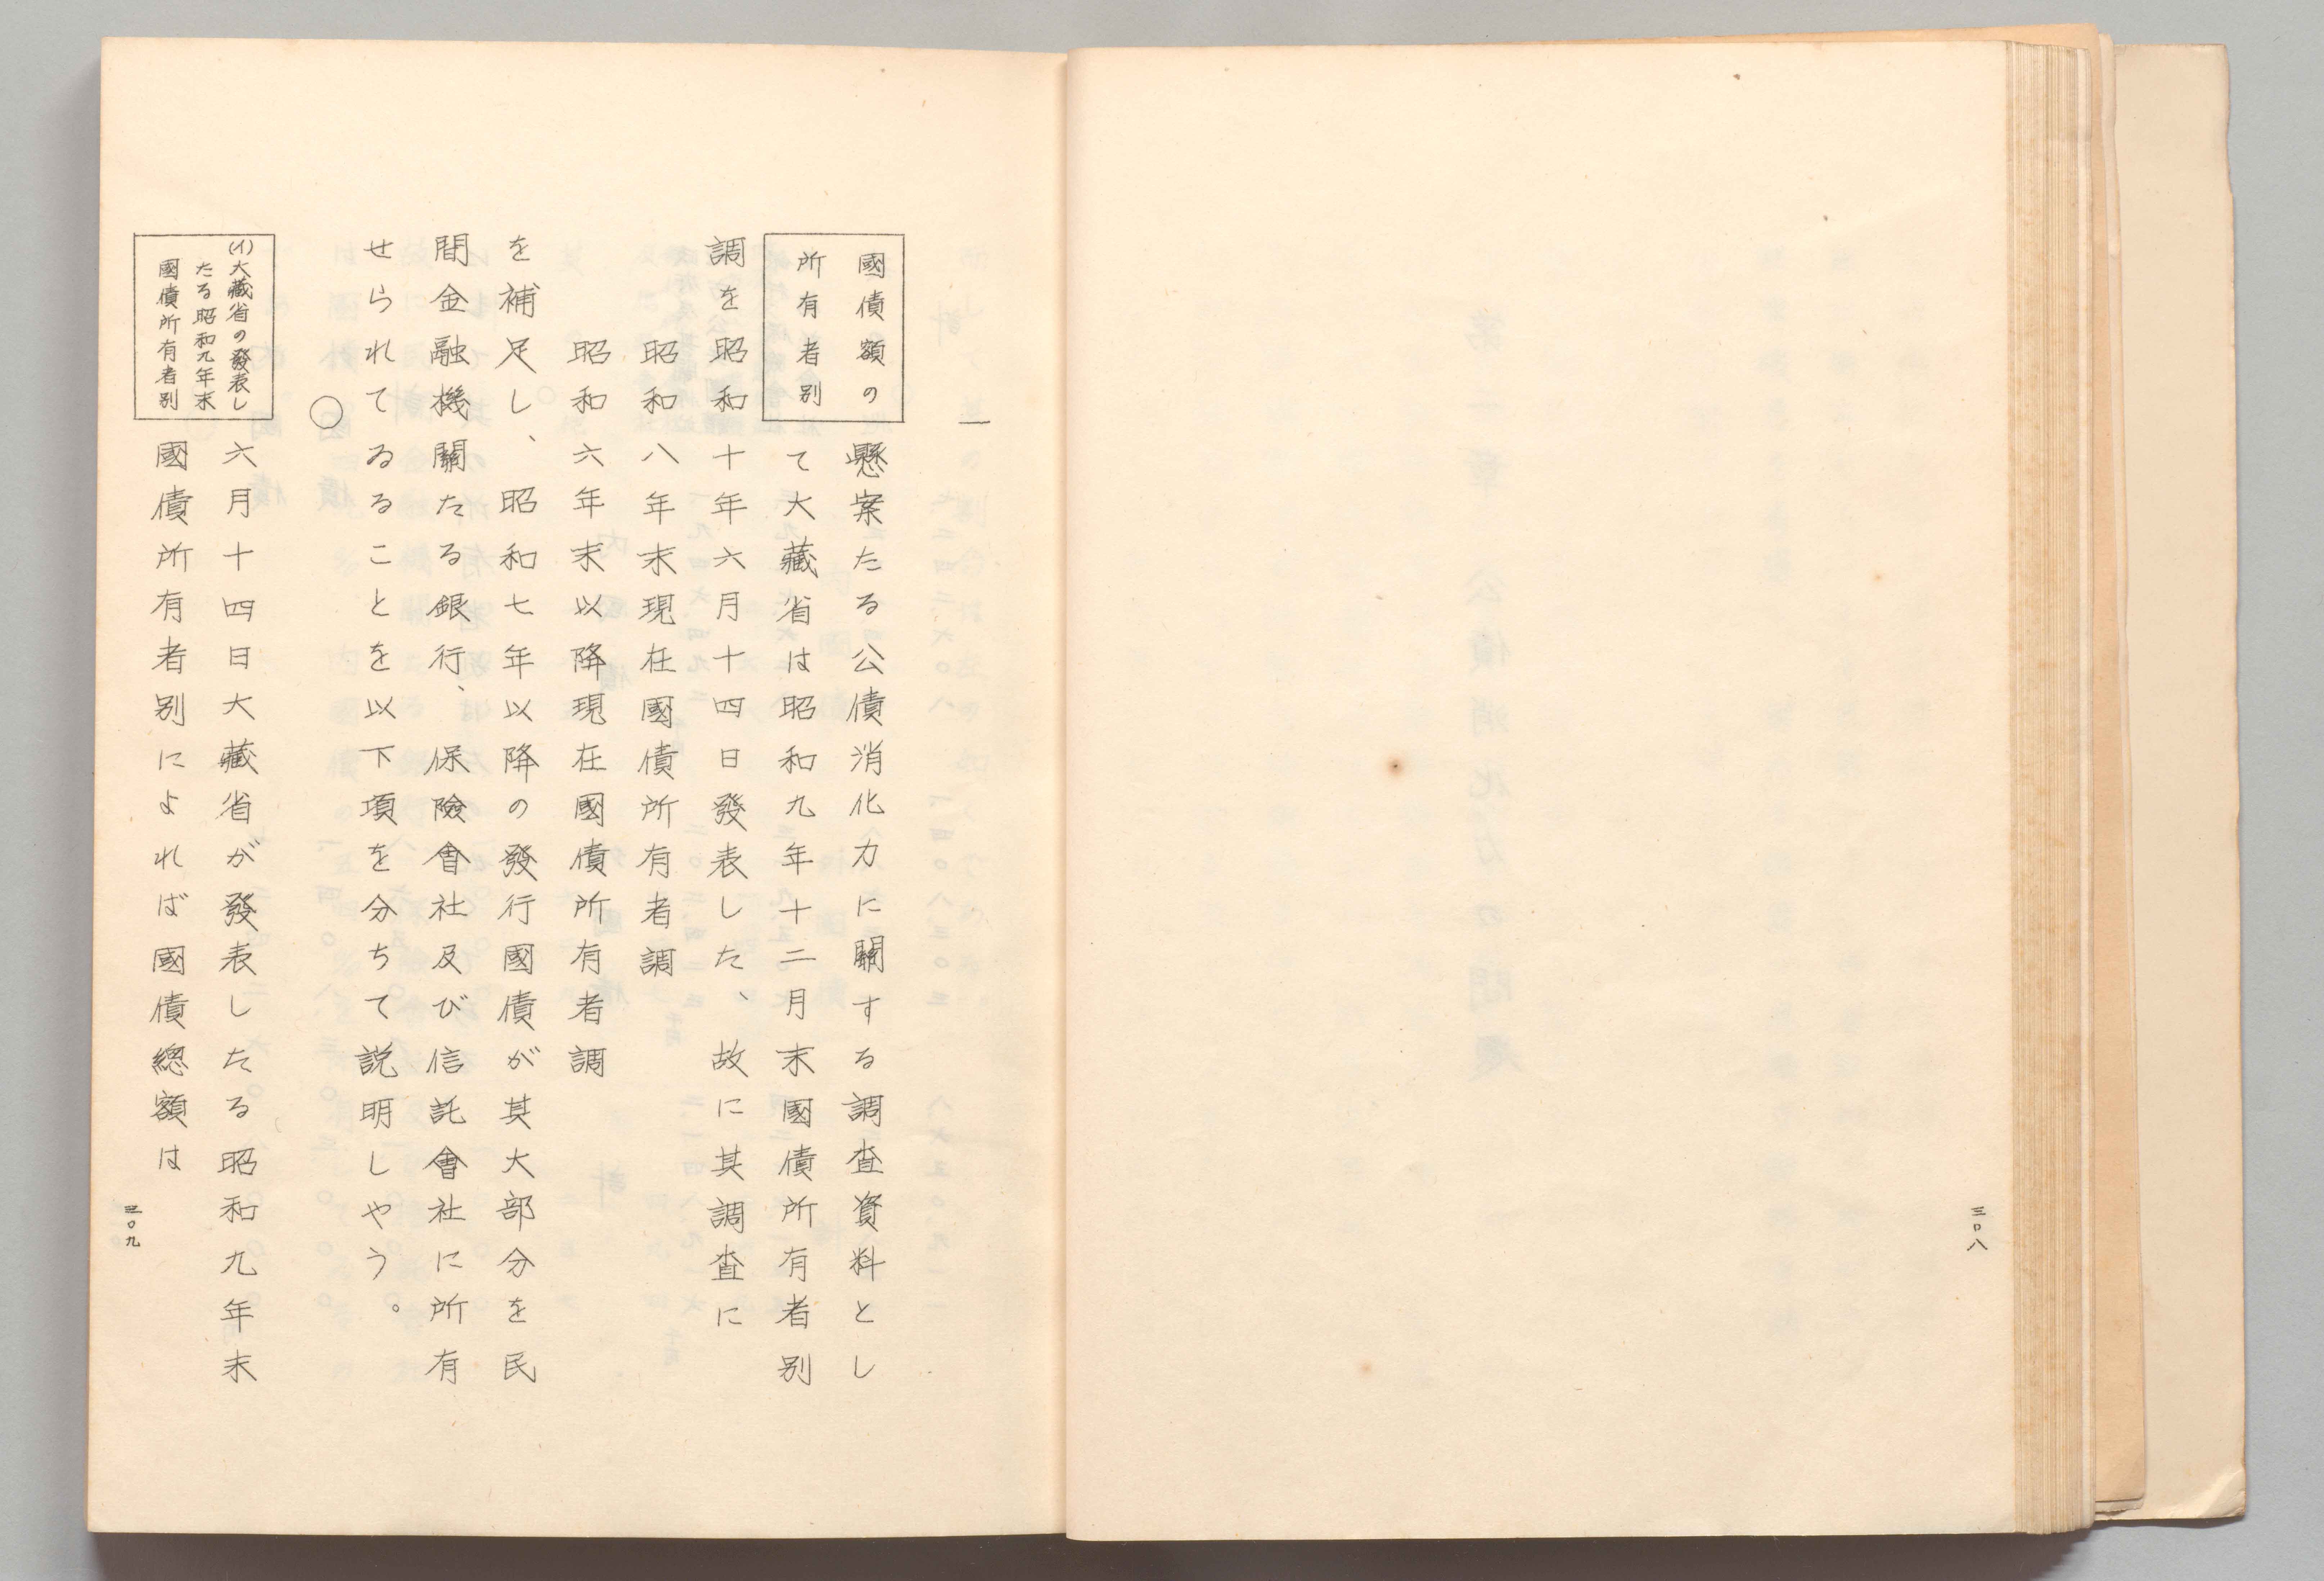 三〇八
一
國債額の
所有者別
懸案たる公債消化力に關する調査資料とし
て大藏省は昭和九年十二月末國債所有者別
調を昭和十年六月十四日發表した、故に其調査に
昭和八年末現在國債所有者調
昭和六年末以降現在國債所有者調
を補足し、昭和七年以降の發行國債が其大部分を民
間金融機關たる銀行、保險會社及び信託會社に所有
せられてゐることを以下項を分ちて説明しやう。
○
(イ)大藏省の發表し
たる昭和九年末
國債所有者別
六月十四日大藏省が發表したる昭和九年末
國債所有者別によれば國債總額は
三〇九